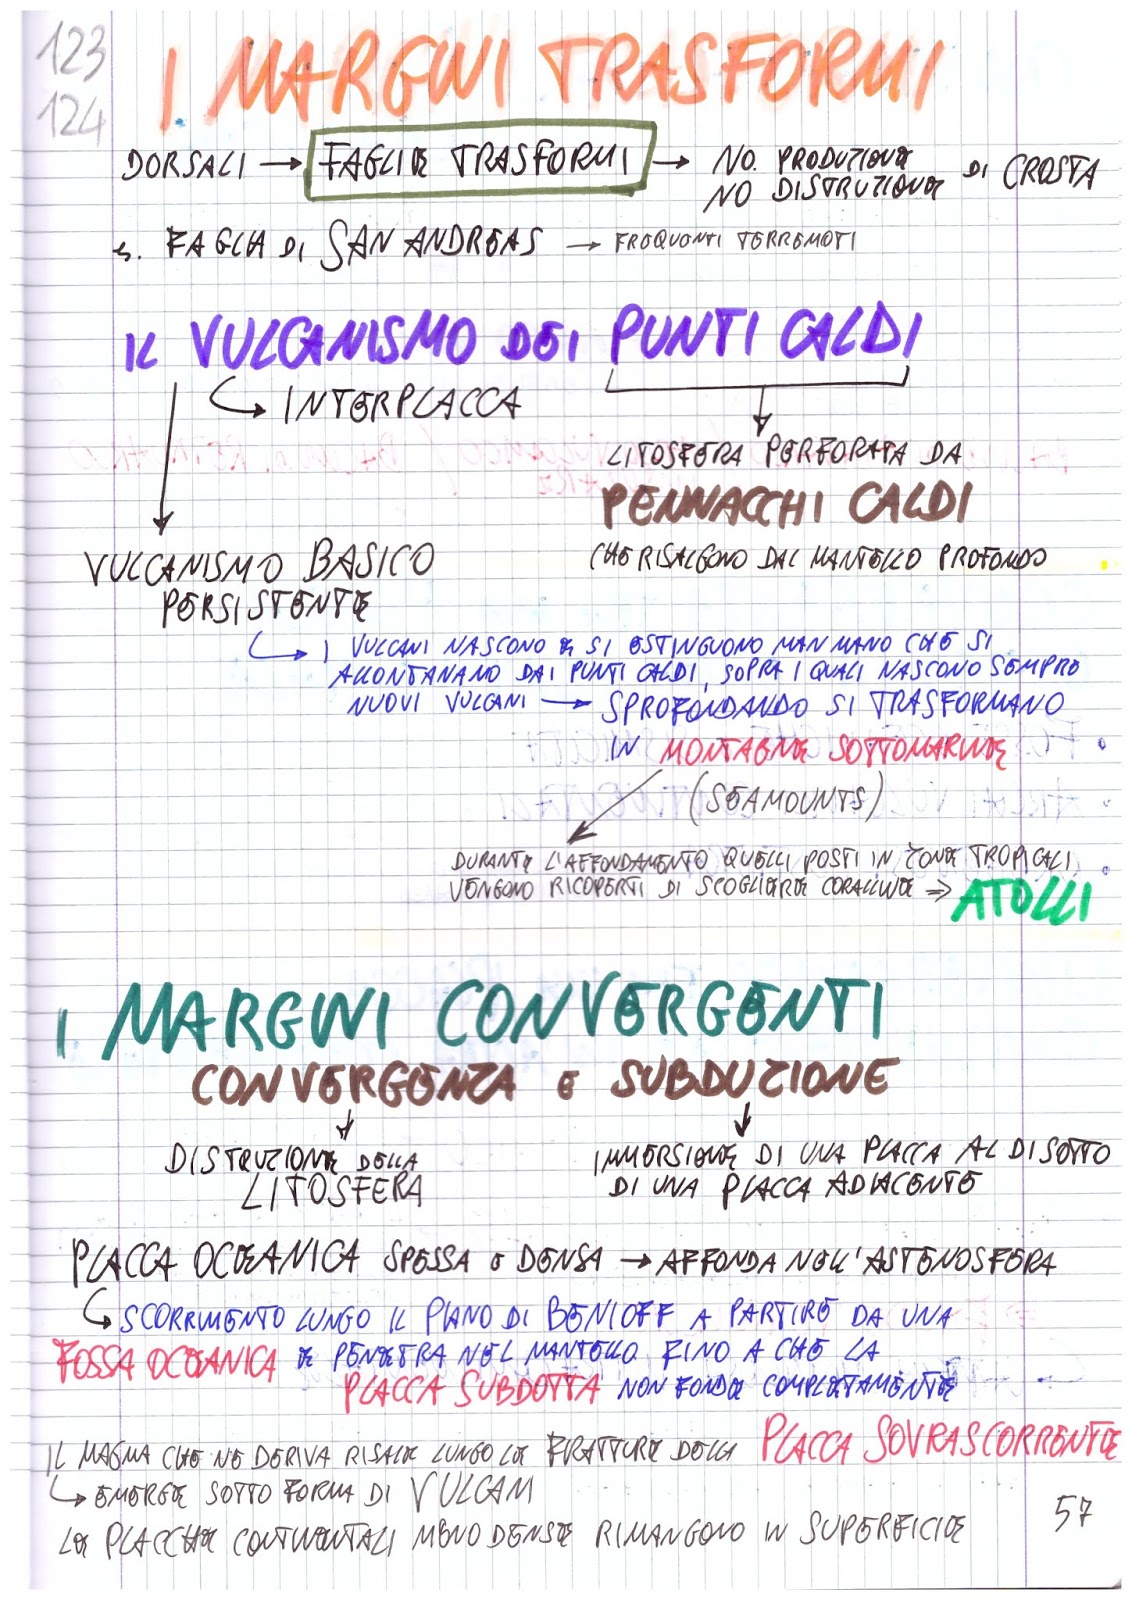 123
124
I MARGINI TRASFORMI
DORSALI → FAGLIE TRASFORMI → NO PRODUZIONE
NO DISTRUZIONE DI CROSTA
es. FAGLIA DI SAN ANDREAS → FREQUENTI TERREMOTI
IL VULCANISMO DEI PUNTI CALDI
INTERPLACCA
LITOSFERA PERFORATA DA
PENNACCHI CALDI
CHE RISALGONO DAL MANTELLO PROFONDO
VULCANISMO BASICO
PERSISTENTE
I VULCANI NASCONO E SI ESTINGUONO MAN MANO CHE SI
ALLONTANANO DAI PUNTI CALDI, SOPRA I QUALI NASCONO SEMPRE
NUOVI VULCANI → SPROFONDANDO SI TRASFORMANO
IN MONTAGNE SOTTOMARINE
(SEAMOUNTS)
DURANTE L'AFFONDAMENTO QUELLI POSTI IN ZONE TROPICALI
VENGONO RICOPERTI DI SCOGLIERE CORALLINE ⇒ ATOLLI
I MARGINI CONVERGENTI
CONVERGENZA E SUBDUZIONE
DISTRUZIONE DELLA
LITOSFERA
IMMERSIONE DI UNA PLACCA AL DISOTTO
DI UNA PLACCA ADIACENTE
PLACCA OCEANICA SPESSA E DENSA → AFFONDA NELL'ASTENOSFERA
SCORRIMENTO LUNGO IL PIANO DI BENIOFF A PARTIRE DA UNA
FOSSA OCEANICA E PENETRA NEL MANTELLO FINO A CHE LA
PLACCA SUBDOTTA NON FONDE COMPLETAMENTE
IL MAGMA CHE NE DERIVA RISALE LUNGO LE FRATTURE DELLA PLACCA SOVRASCORRENTE
EMERGE SOTTO FORMA DI VULCANI
LE PLACCHE CONTINENTALI MENO DENSE RIMANGONO IN SUPERFICIE
57